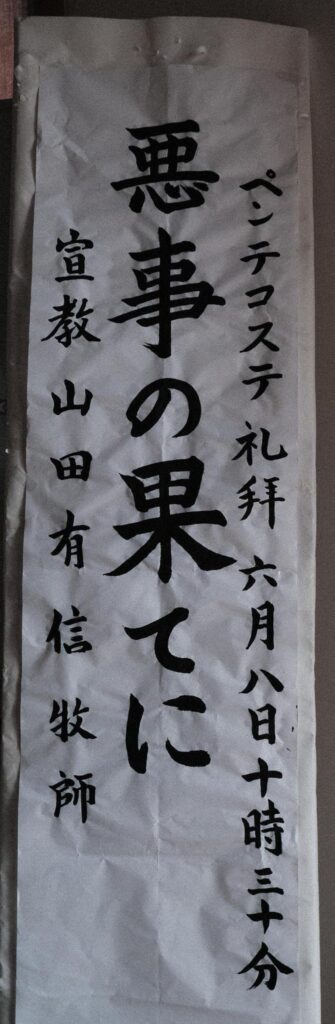 ペンテコステ礼拝 六月八日十時三十分
悪事の果てに
宣教 山田有信牧師